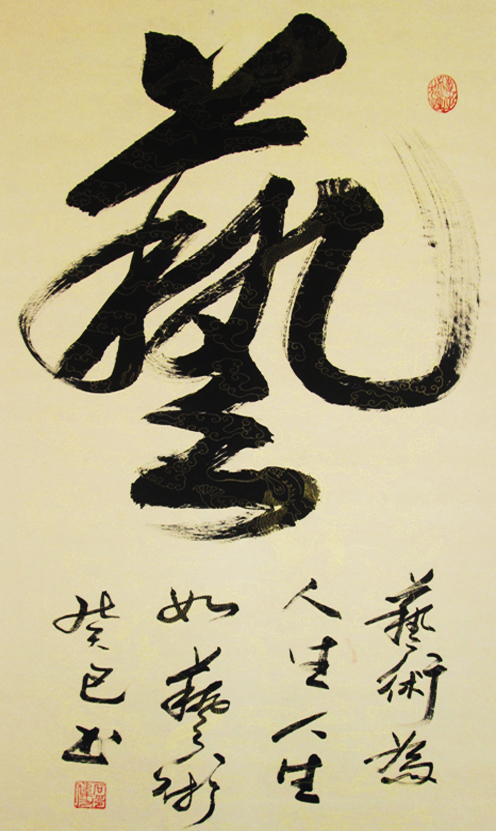 藝
藝術為
人生人生
如藝術
癸巳書